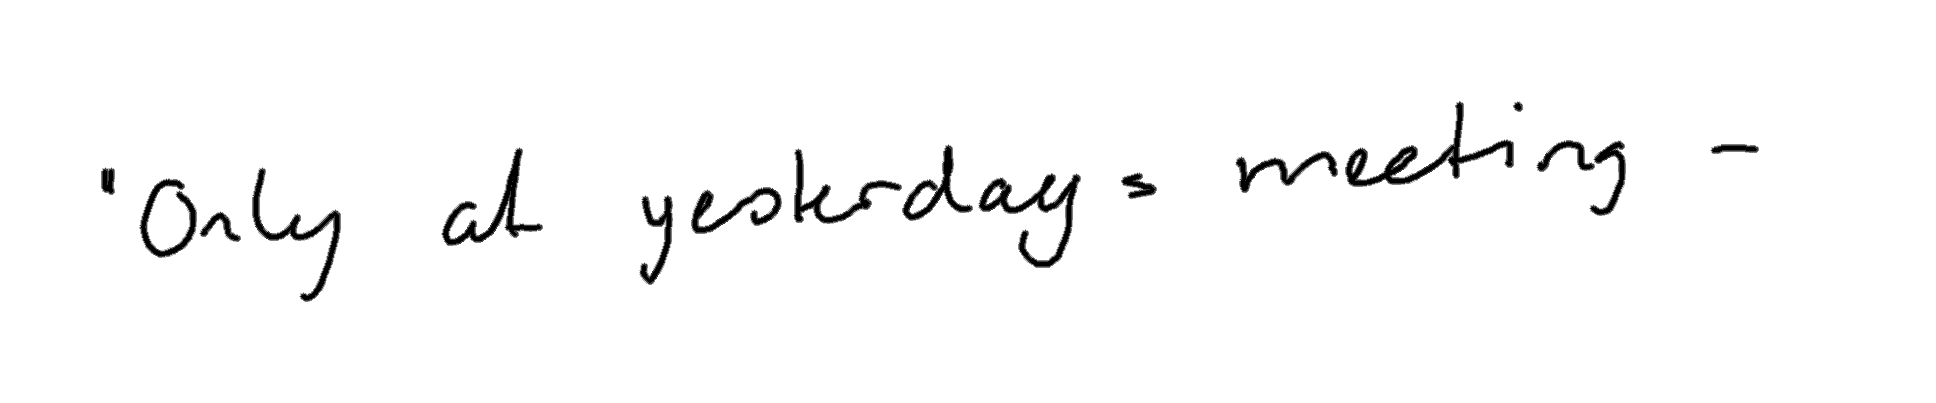 "Only at yesterday s meeting -